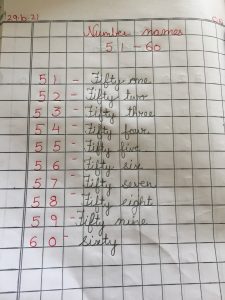 29.6.21
Number names
51-60
51 - Fifty one
52 - Fifty two
53 - Fifty three
54 - Fifty four
55 - Fifty five
56 - Fifty six
57 - Fifty seven
58 - Fifty eight
59 - Fifty nine
60 - Sixty